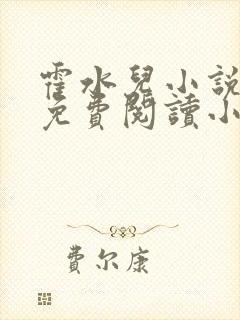 霍水兒小說
免費閱讀小
費尔康